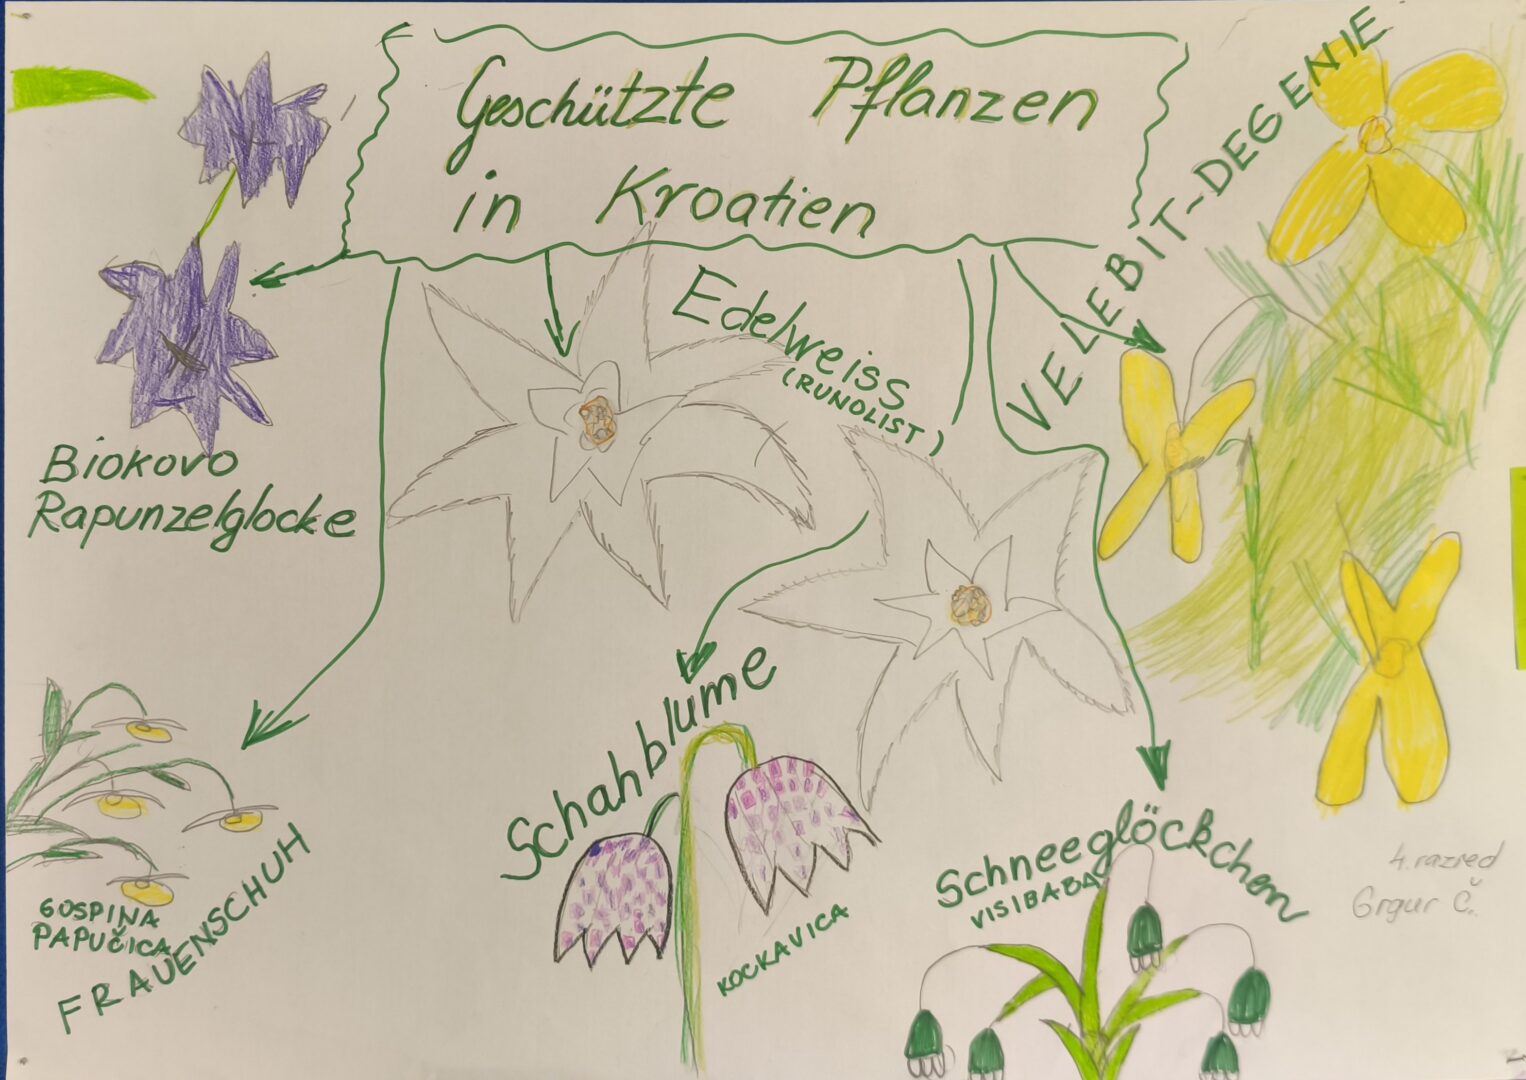 Geschützte Pflanzen
in Kroatien
VELEBIT-DEGENIE
Edelweiss
(RUNOLIST)
Biokovo
Rapunzelglocke
Schahblume
KOCKAVICA
Schneeglöckchen
VISIBABA
GOSPINA
PAPUČICA
FRAUENSCHUH
4. razred
Grgur Č.